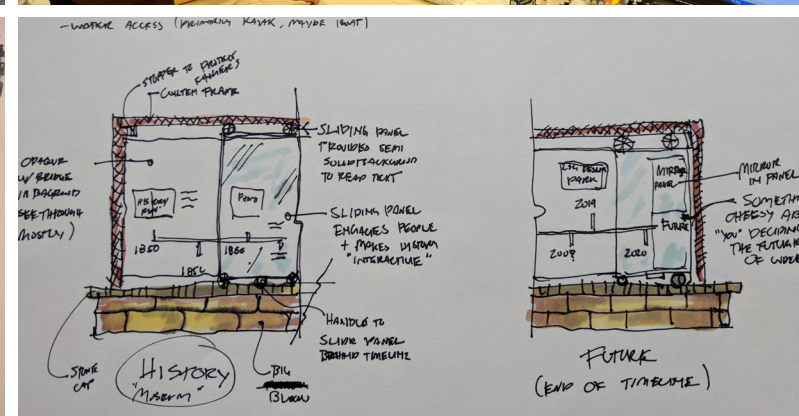 - WATER ACCESS (PRIMARILY KAYAK, MAYBE BOAT)
STOPPER TO PROTECT
FINGERS
CORTEN FRAME
OPAQUE
W/ BRIDGE
IN BACKGROUND
SEE THROUGH
MOSTLY)
HISTORY
PHOTO
1850
1856
1866
SLIDING PANEL
PROVIDES SEMI
SOLID BACKGROUND
TO READ TEXT
SLIDING PANEL
ENGAGES PEOPLE
+ MAKES HISTORY
"INTERACTIVE"
HANDLE TO
SLIDE PANEL
BEHIND TIMELINE
STONE
CAP
HISTORY
"MUSEUM"
BIG
BLOCK
PARK
2019
2008
2020
MIRROR
PANEL
FUTURE
MIRROR
IN PANEL
SOMETH
CHEESY AB
"YOU" DECIDING
THE FUTURE
OF
FUTURE
(END OF TIMELINE)